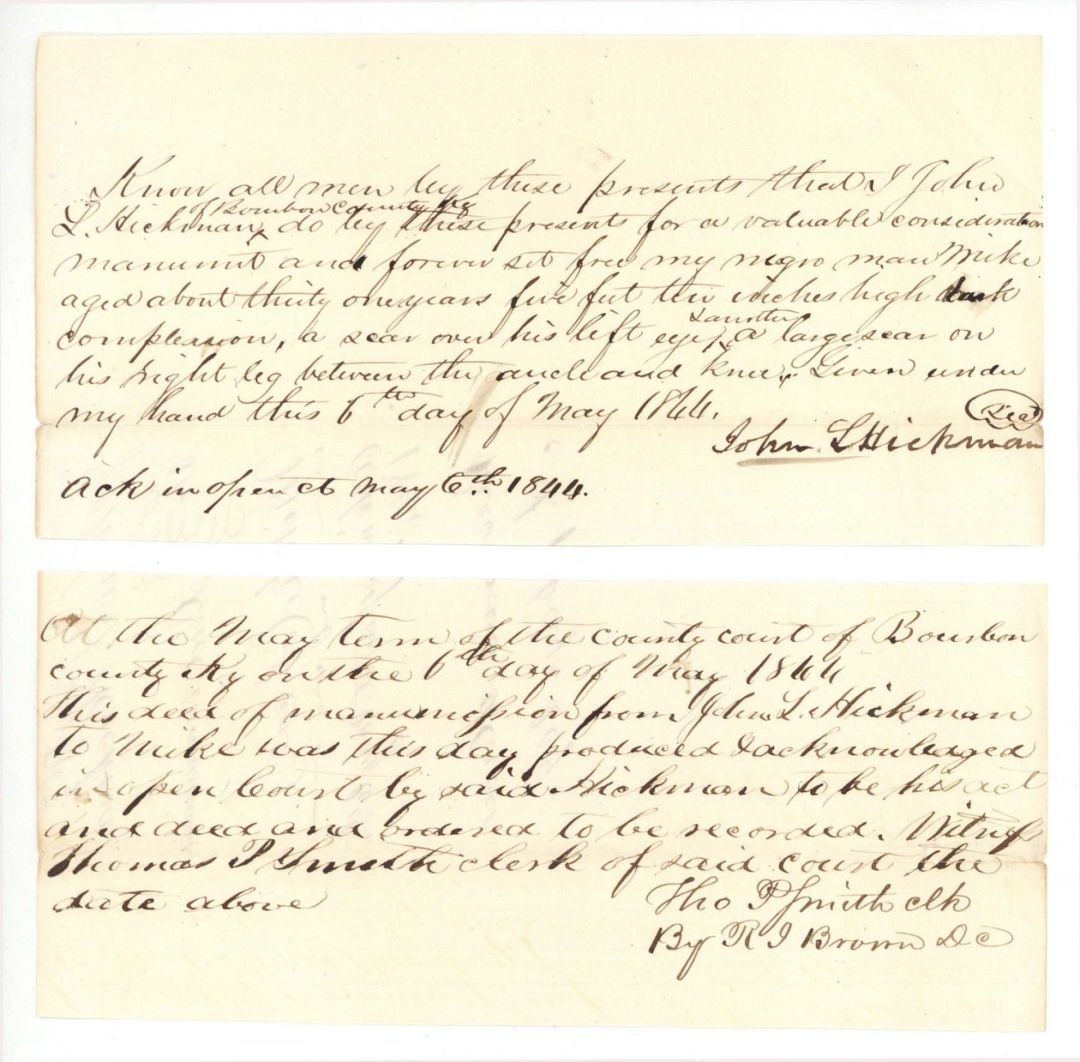 Know all men by these presents that I John
of Bourbon County Ky
L. Hickman, do by these presents for a valuable consideration
manumit and forever set free my negro man Mike
aged about thirty one years five feet ten inches high dark
& another
complexion, a scar over his left eye, a large scar on
his right leg between the ancle and knee. Given under
my hand this 6th day of May 1844.
Seal
John L Hickman
Ack in open ct May 6th 1844.
At the May term of the county court of Bourbon
county Ky on the 6th day of May 1844
This deed of manumission from John L. Hickman
to Mike was this day produced & acknowledged
in open Court by said Hickman to be his act
and deed and ordered to be recorded. Witness
Thomas P Smith clerk of said court the
date above
Tho P Smith clk
By R J Brown D C